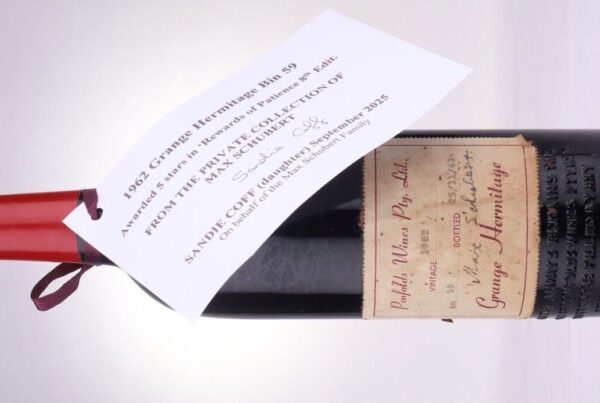 1962 Grange Hermitage Bin 59
Awarded 5 stars in 'Rewards of Patience 8th Edit.
FROM THE PRIVATE COLLECTION OF
MAX SCHUBERT
Sandie Coff
SANDIE COFF (daughter) September 2025
On behalf of the Max Schubert Family
Penfolds Wines Pty. Ltd.
VINTAGE 1962 BOTTLED
BIN 59
Max Schubert.
Grange Hermitage